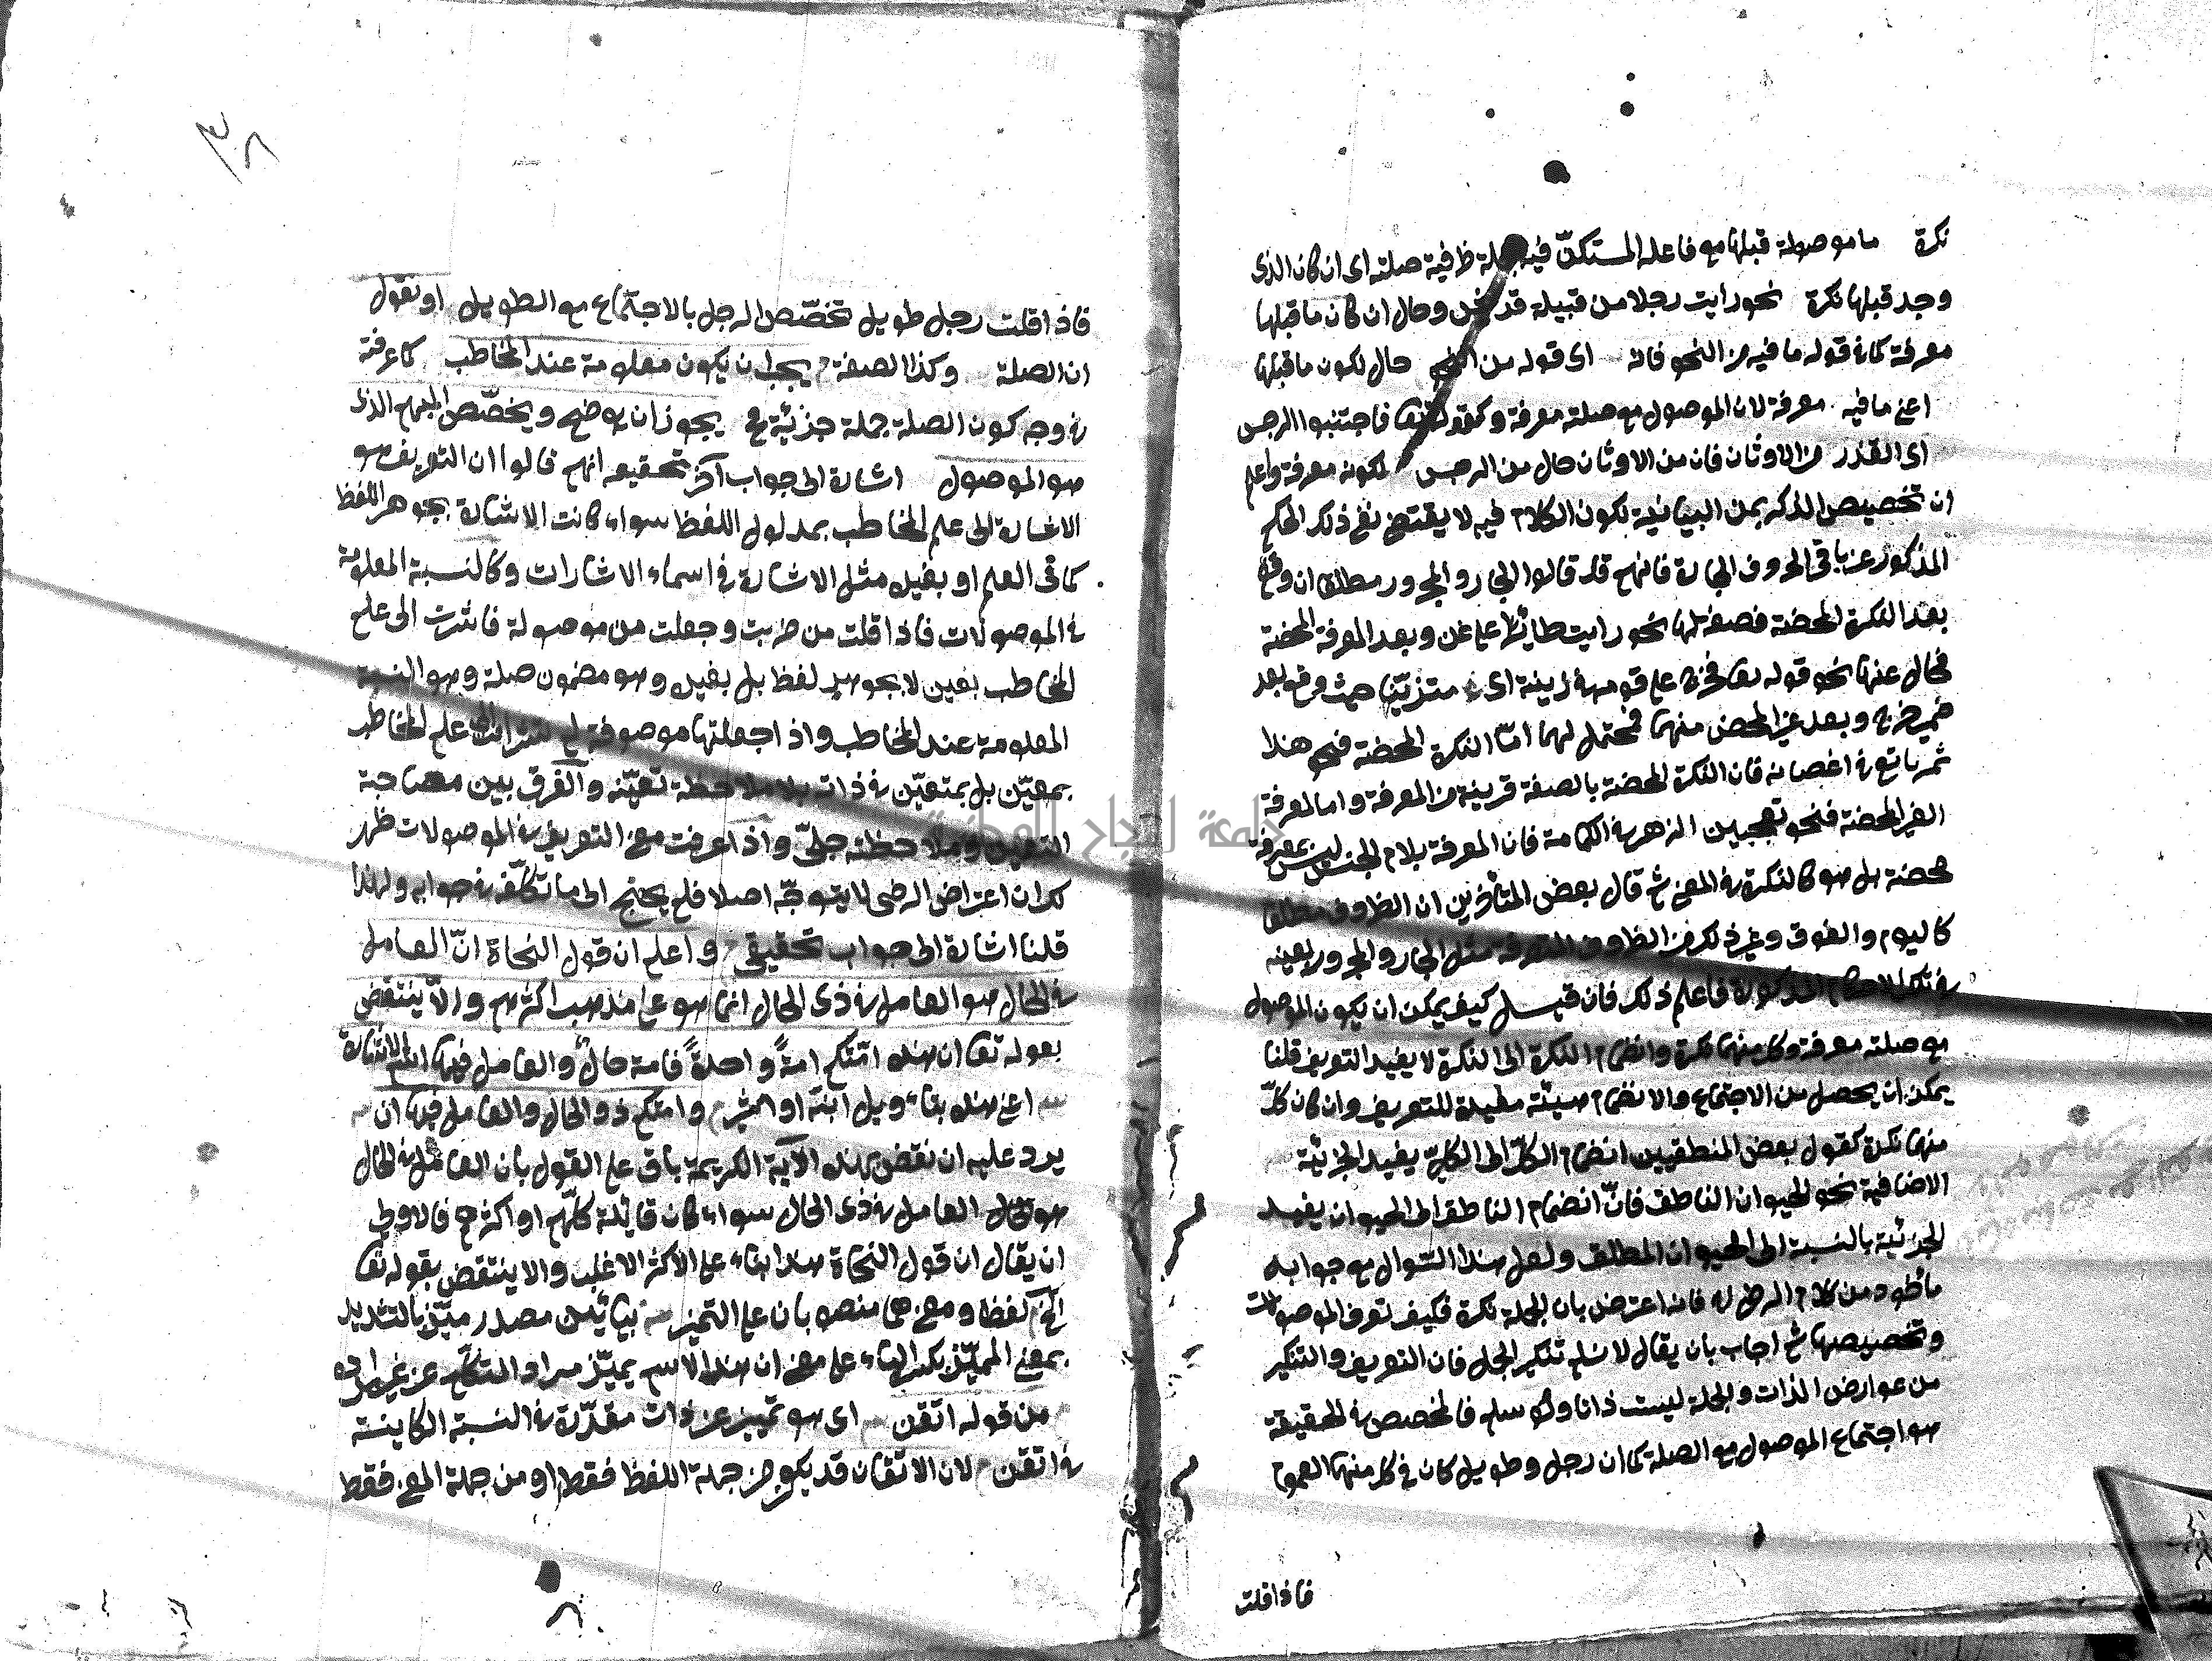 نكرة ما موصولة قبلها مع فاعله المستكنّ فيه جملة ظرفية صلته اى ان كان الذى
وجد قبلها نكرة نحو رايت رجلا من قبيلة قد وحال ان كان ما قبلها
معرفة كما فى قوله ما فيه من النحو فانه اى قوله من النحو حال لكون ما قبلها
اعنى ما فيه معرفة لان الموصول مع صلته معرفة وكقوله تعا فاجتنبوا الرجس
اى القذر من الاوثان فان من الاوثان حال من الرجس لكونه معرفة واعلم
ان تخصيص الذكر بمن البيانية لكون الكلام فيه لا يقتضى نفى ذلك الحكم
المذكور عن باقى الحروف الجارة فانهم قد قالوا الجار والمجرور مطلقا ان وقع
بعد النكرة المحضة فصفة لها نحو رايت طائرًا على غصن وبعد المعرفة المحضة
فحال عنها نحو قوله تعا فخرج على قومه فى زينته اى متزيّنا حيث وقع بعد
ضمير خرج وبعد غير المحض منهما فمحتمل لهما امّا النكرة الغير المحضة فنحو هذا
ثمر يانع فى اغصانه فان النكرة المحضة بالصفة قريبة من المعرفة واما المعرفة
الغير المحضة فنحو تعجبين الزهر فى اكمامه فان المعرفة بلام الجنس ليس بمعرفة
محضة بل هو كالنكرة فى المعنى ثم قال بعض المتأخرين ان الظروف مطلقا
كاليوم والفوق وغير ذلك من الظروف مثل الجار والمجرور بعينه
فى تلك الاحكام المذكورة فاعلم ذلك فان قيل كيف يمكن ان يكون الموصول
مع صلته معرفة وكل منهما نكرة وانضمام النكرة الى النكرة لا يفيد التعريف قلنا
يمكن ان يحصل من الاجتماع والانضمام هيئة مفيدة للتعريف وان كان كلّ
منهما نكرة كقول بعض المنطقيين انضمام الكلىّ الى الكلىّ يفيد الجزئية
الاضافية نحو الحيوان الناطق فانّ انضمام الناطق الى الحيوان يفيد
الجزئية بالنسبة الى الحيوان المطلق ولعل هذا السّوال مع جوابه
مأخوذ من كلام الرضى له فانه اعترض بان الجملة نكرة فكيف تعرف الموصولات
وتخصيصها ثم اجاب بان يقال لا نسلم تنكير الجمل فان التعريف والتنكير
من عوارض الذات والجملة ليست ذاتا ولو سلم فالمخصص فى الحقيقة
هو اجتماع الموصول مع الصلة كما ان رجل وطويل كان فى كل منهما العموم
فاذا قلت
٣٨
فاذا قلت رجل طويل تخصّص الرجل بالاجتماع مع الطويل او نقول
ان الصلة وكذا الصفة يجب ان يكون معلومة عند المخاطب كما عرفته
فى وجه كون الصلة جملة خبرية يجوز ان يوضح ويخصّص المبهم الذى
هو الموصول اشارة الى جواب آخر تحقيقه انهم قالوا ان التعريف هو
الاشارة الى علم المخاطب بمدلول اللفظ سواء كانت الاشارة بجوهر اللفظ
كما فى العلم او بغيره مثل الاشارة فى اسماء الاشارات وكالنسبة المعلومة
فى الموصولات فاذا قلت من ضربت وجعلت من موصولة فاشرت الى علم
المخاطب بمعين لا بجوهر لفظ بل بغيره وهو مضمون صلة وهو النسبة
المعلومة عند المخاطب واذا جعلتها موصوفة علم المخاطب
بمعيّن بل بمتعيّن فى ذاته بلا ملاحظة تعيّنه والفرق بين مصاحبة
التعيين وملاحظته جلىّ واذا عرفت معنى التعريف فى الموصولات ظهر
لك ان اعتراض الرضى لا يتوجّه اصلا فلم يحتج الى ما تكلّفه فى جوابه ولهذا
قلنا اشارة الى جواب تحقيقى واعلم ان قول النحاة انّ العامل
فى الحال هو العامل فى ذى الحال انما هو على مذهب اكثرهم والّا ينتقض
بقوله تعا ان هذه امّتكم امةً واحدةً فامة حالٌ والعامل فيها اسم الاشارة
اعنى هذه بتاويل انبّه او اشير وامتكم ذو الحال والعامل فيها ان
يرد عليه ان نقض هذه الآية الكريمة باق على القول بان العامل فى الحال
هو العامل فى ذى الحال سواء كان قائله كلّهم او اكثرهم فالاولى
ان يقال ان قول النحاة هذا بناء على الاكثر الاغلب والا ينتقض بقوله تعا
لفظا ومعنى هما منصوبان على التمييز بيائين مصدر ميّز بالتشديد
بمعنى المميّز بكسر الياء على معنى ان هذا الاسم يميّز مراد المتكلم عن غير مراده
من قوله اتقن اى هو تمييز عن ذات مقدّرة فى النسبة الكاينة
فى اتقن لان الاتقان قد يكون من جهة اللفظ فقط او من جهة المعنى فقط
جامعة النجاح الوطنية